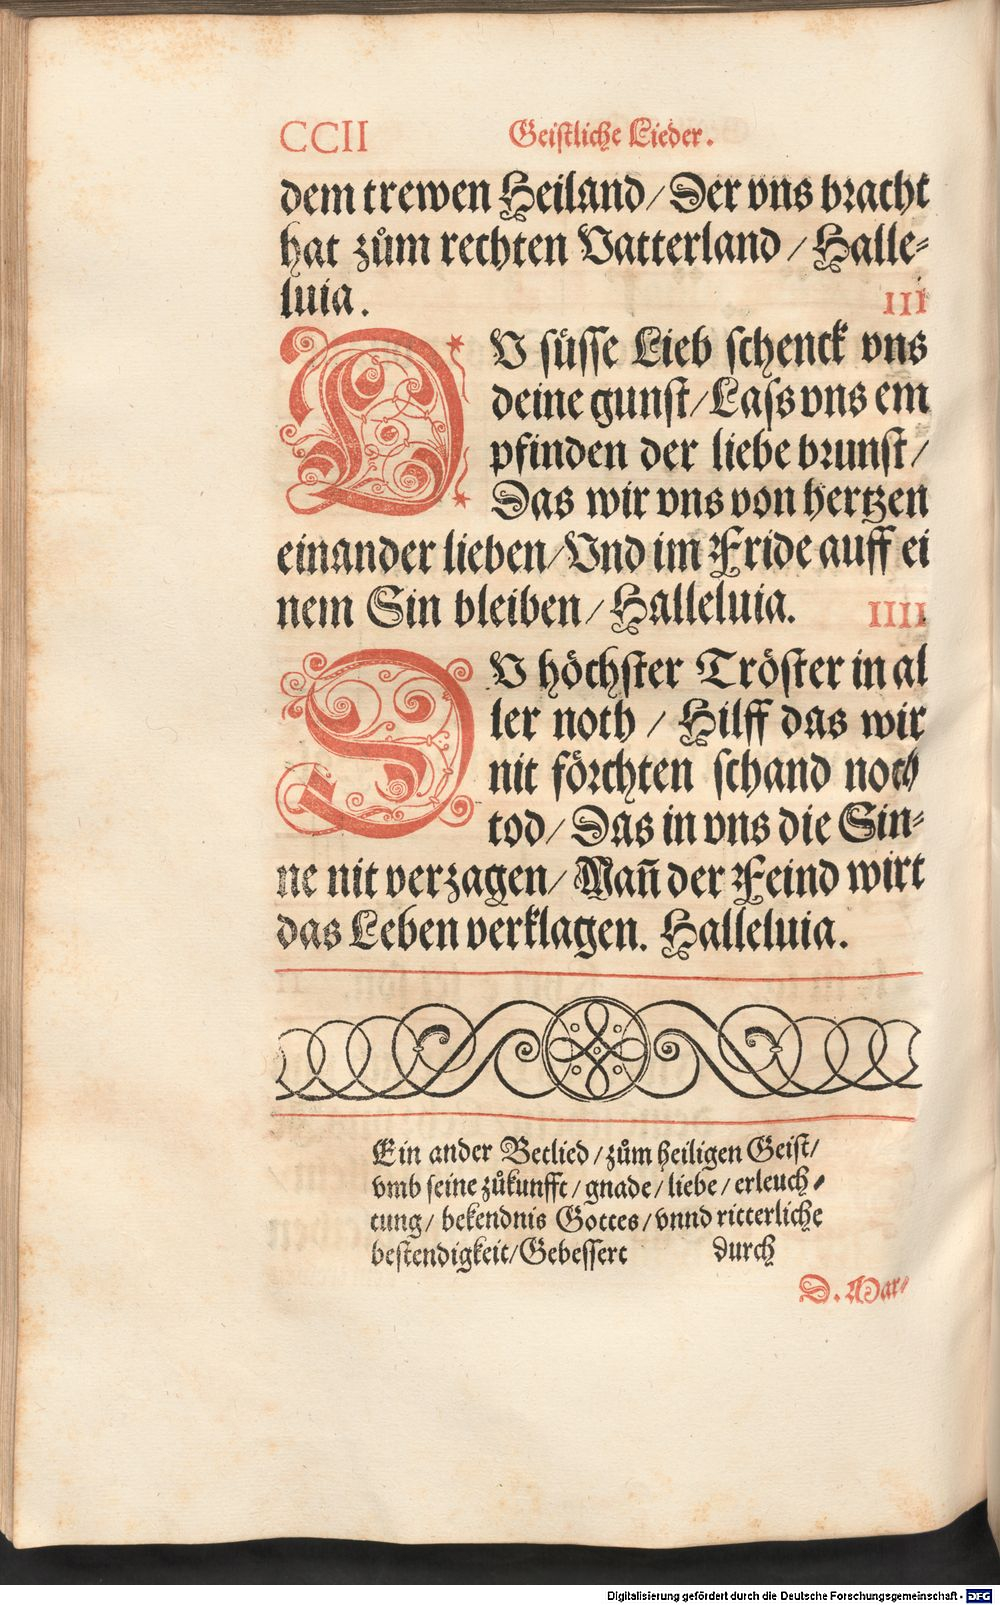 CCII Geistliche Lieder.
dem trewen Heiland / Der vns bracht
hat zům rechten Vatterland / Halle-
luia.
III
DV süsse Lieb schenck vns
deine gunst / Lass vns em
pfinden der liebe brunst /
Das wir vns von hertzen
einander lieben / Vnd im Fride auff ei
nem Sin bleiben / Halleluia.
IIII
DV höchster Tröster in al
ler noth / Hilff das wir
nit förchten schand noch
tod / Das in vns die Sin-
ne nit verzagen / Wañ der Feind wirt
das Leben verklagen. Halleluia.
Ein ander Betlied / zům heiligen Geist /
vmb seine zůkunfft / gnade / liebe / erleuch-
tung / bekendnis Gottes / vnnd ritterliche
bestendigkeit / Gebessert durch
D. Mar-
Digitalisierung gefördert durch die Deutsche Forschungsgemeinschaft - DFG